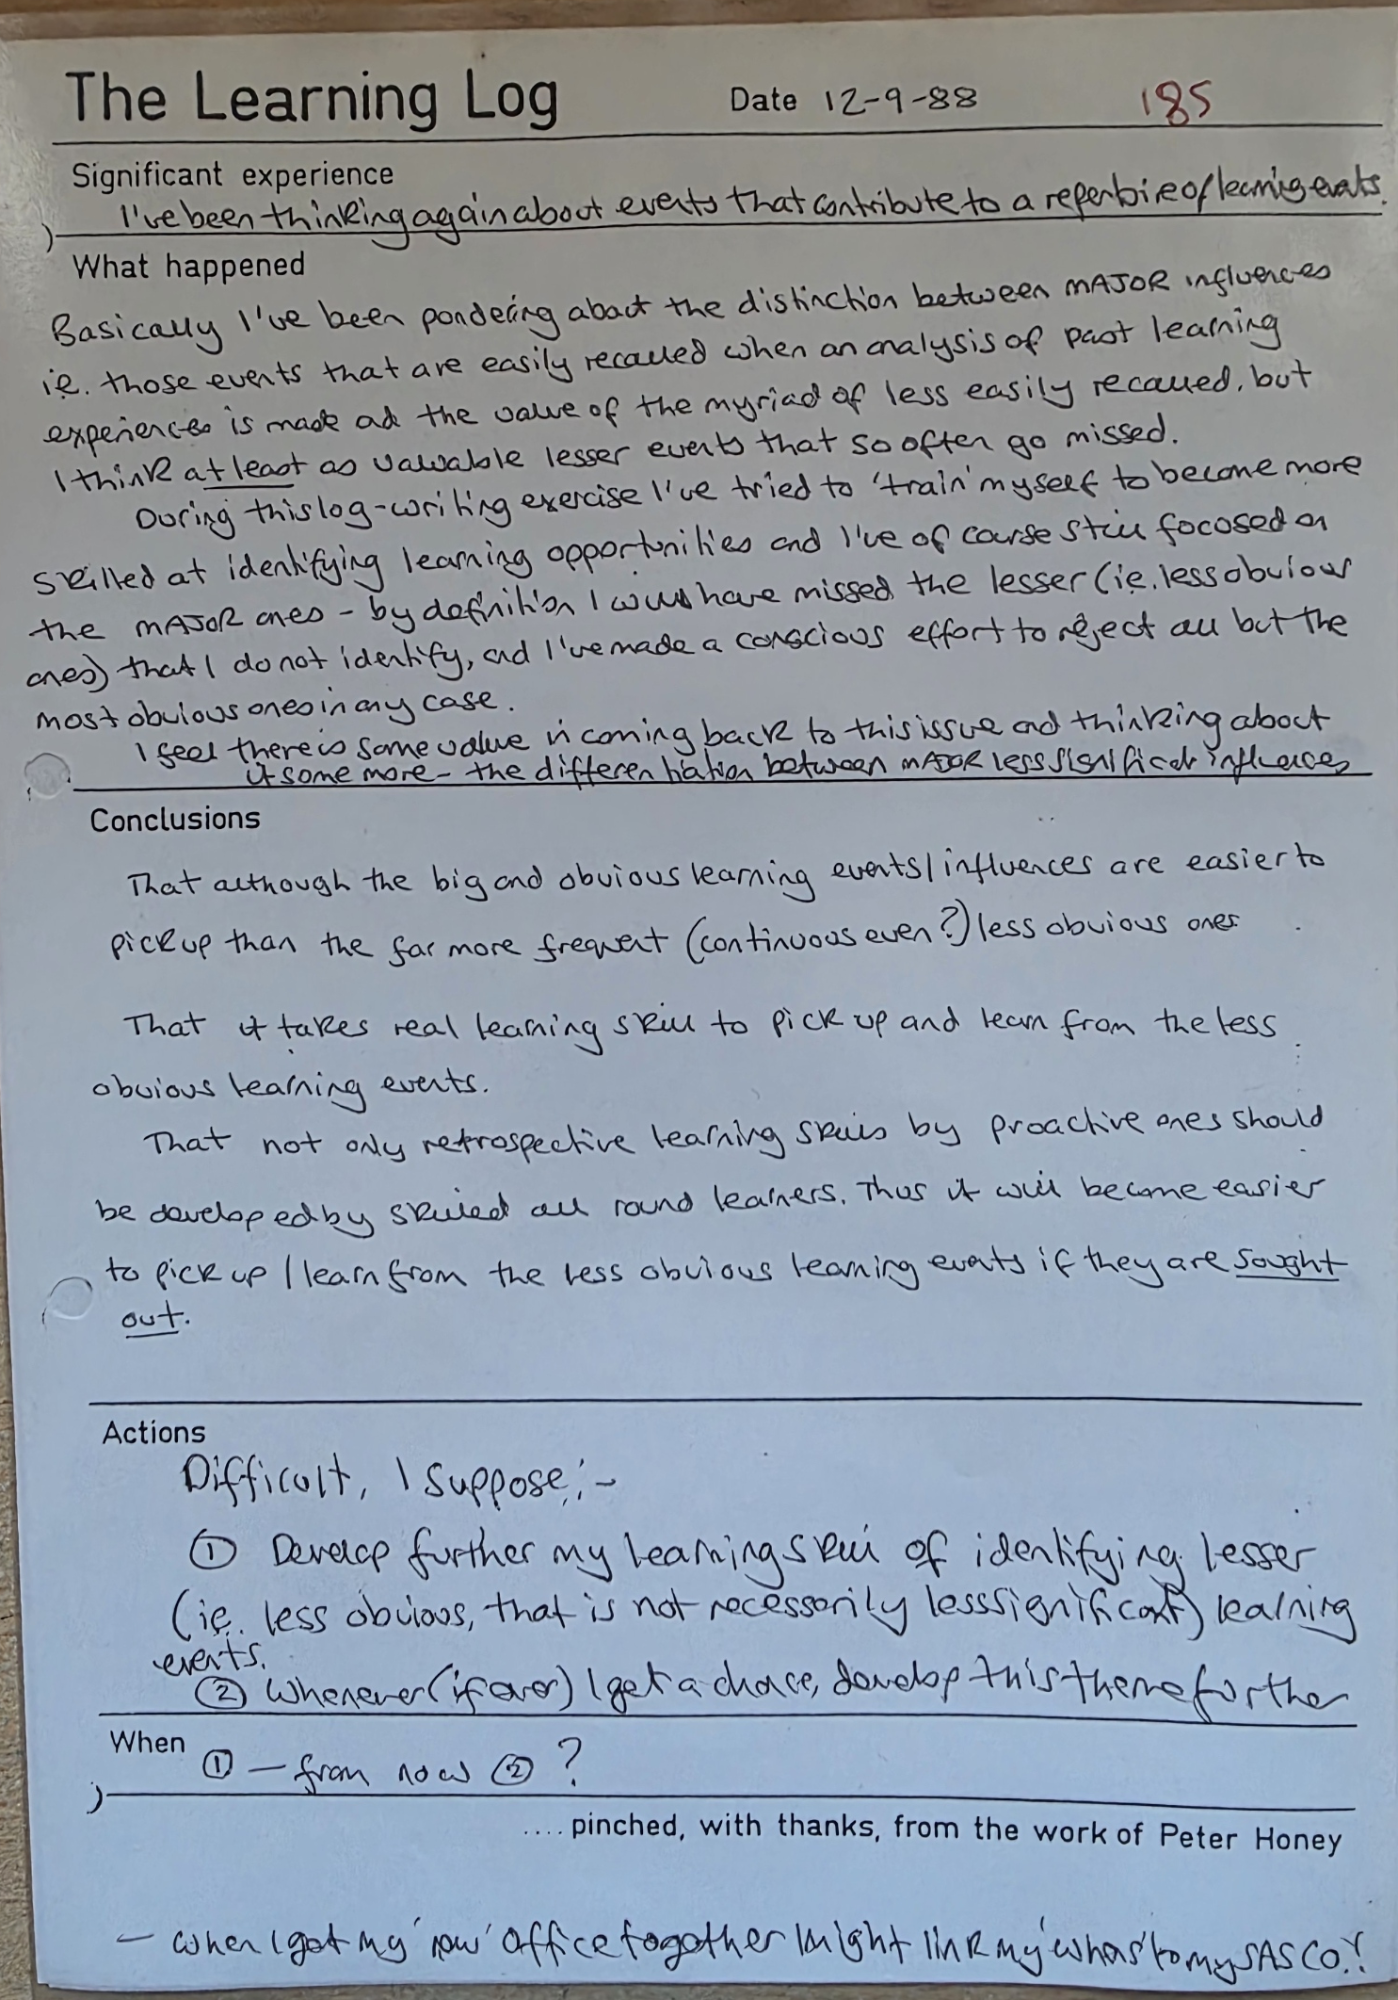 The Learning Log Date 12-9-88 185
Significant experience
I've been thinking again about events that contribute to a repertoire of learning events.
What happened
Basically I've been pondering about the distinction between MAJOR influences
i.e. those events that are easily recalled when an analysis of past learning
experiences is made and the value of the myriad of less easily recalled, but
I think at least as valuable lesser events that so often go missed.
During this log-writing exercise I've tried to 'train' myself to become more
skilled at identifying learning opportunities and I've of course still focused on
the MAJOR ones - by definition I will have missed the lesser (ie. less obvious
ones) that I do not identify, and I've made a conscious effort to reject all but the
most obvious ones in any case.
I feel there is some value in coming back to this issue and thinking about
it some more - the differentiation between MAJOR less significant influences
Conclusions
That although the big and obvious learning events/influences are easier to
pick up than the far more frequent (continuous even?) less obvious ones
That it takes real learning skill to pick up and learn from the less
obvious learning events.
That not only retrospective learning skills by proactive ones should
be developed by skilled all round learners. Thus it will become easier
to pick up / learn from the less obvious learning events if they are sought
out.
Actions
Difficult, I suppose:-
① Develop further my learning skill of identifying lesser
(ie. less obvious, that is not necessarily less significant) learning
events.
② Whenever (if ever) I get a chance, develop this theme further
When ① - from now ② ?
.... pinched, with thanks, from the work of Peter Honey
- when I get my 'new' office together I might link my to my SASCO.